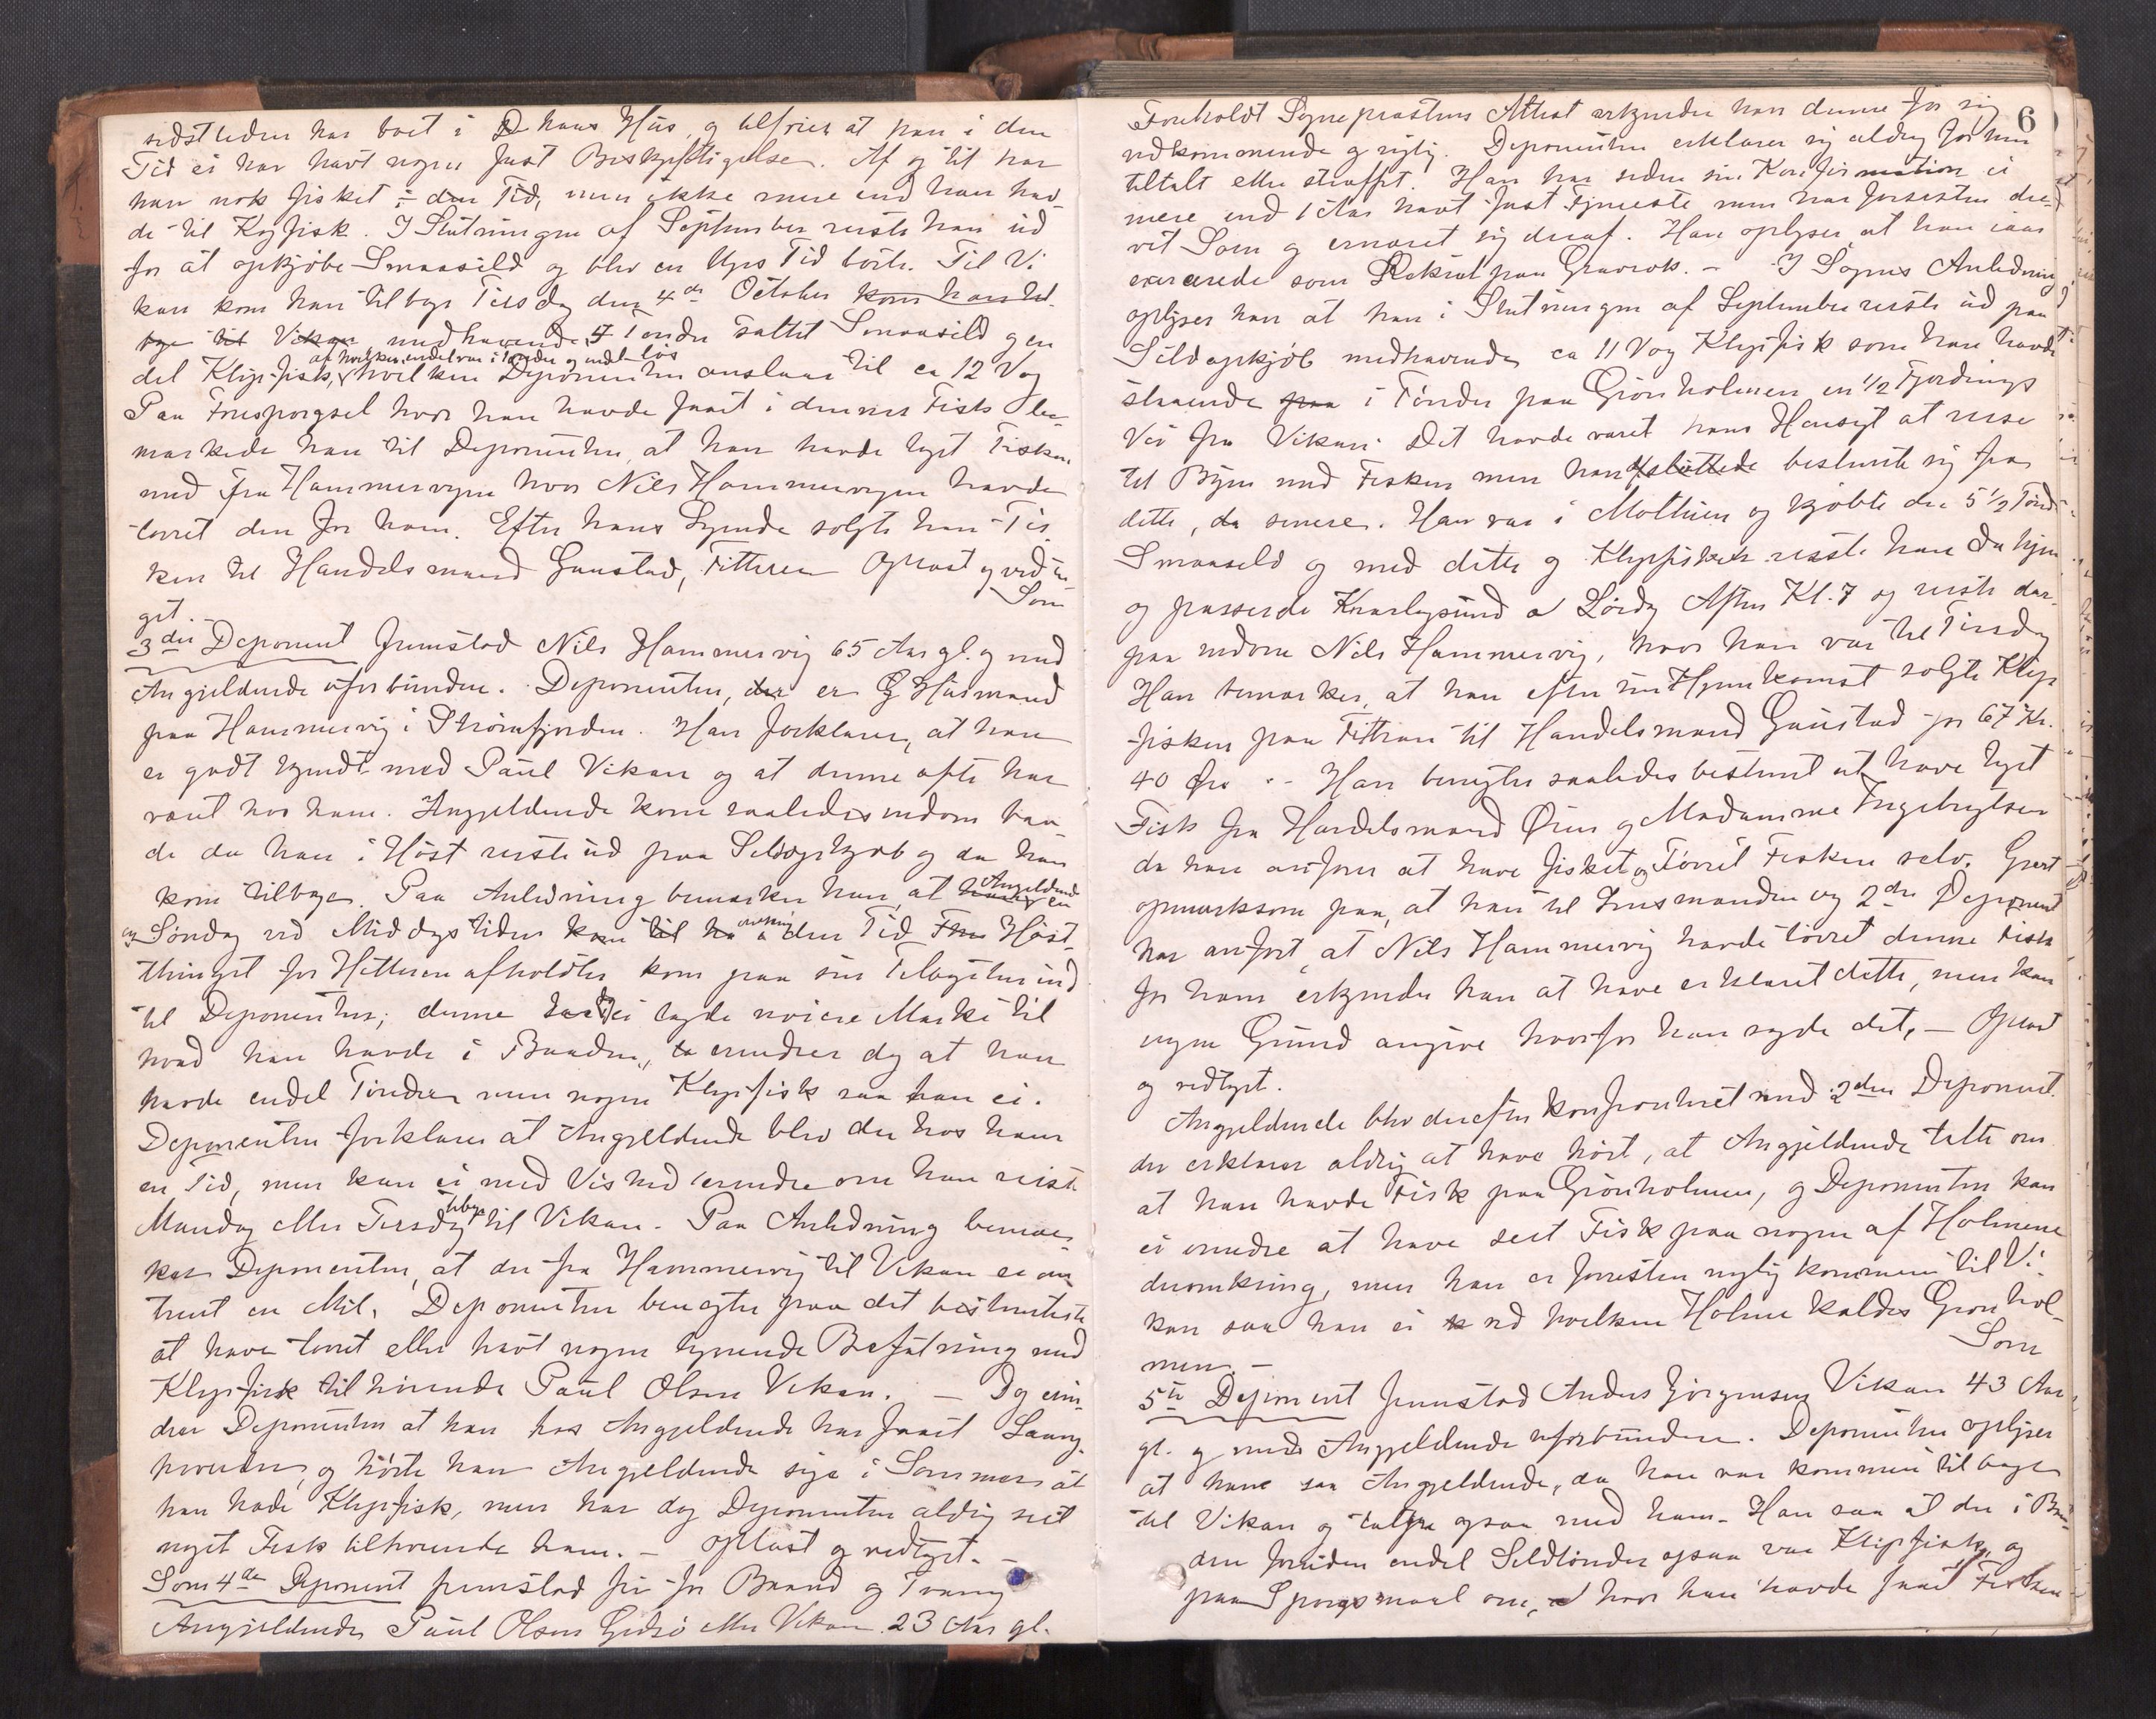 sidstleden har boet i D hans Hus, og tilføier at han i den
Tid ei har havt nogen fast Beskjæftigelse. Af og til har
han nok fisket i den Tid, men ikke mere end han hav-
de til Kogfisk. I Slutningen af September reiste han ud
for at opkjøbe Smaasild og blev en Uges Tid borte. Til Vi-
kan kom han tilbage Tirsdag den 4de October kom han til-
bage til Vikan medhavende 4 Tønder saltet Smaasild og en
af hvilken endel var i Tønder og endel løs
del Klipfisk, hvilken Deponenten anslaar til ca 12 Vog
Paa Forespørgsel hvor han havde faaet i denne Fisk be-
mærkede han til Deponenten, at han havde taget Fisken
med fra Hammervigen hvor Nils Hammervigen havde
tørret den for ham. Efter hans Sigende solgte han Fis-
ken til Handelsmand Gaustad, Titteren Oplæst og vedta-
get. Som
3die Deponent fremstod Nils Hammervig 65 Aar gl. og med
Angjeldende uforbunden. Deponenten, der er G Husmand
paa Hammervig i Strømfjorden. Han forklarer, at han
er godt kjendt med Paul Vikan og at denne ofte har
været hos ham. Angjeldende kom saaledes indom baa-
de da han i Høst reiste ud paa Sildopkjøb og da han
kom tilbage. Paa Anledning bemærker han, at han Angjeldende en
Søndag ved Middagstiden kom til ha omkring den Tid Høst-
thinget for Hitteren afholdtes kom paa sin Tilbagetur ind
til Deponenten; denne lagde ei nøiere Mærke til
hvad han havde i Baaden, erindrer dog at han
havde endel Tønder men nogen Klipfisk saa han ei.
Deponenten forklarer at Angjeldende blev der hos ham
en Tid, men kan ei med Vished erindre om han reiste
Mandag eller Tirsdag tilbage til Vikan. Paa Anledning bemær-
ker Deponenten, at der fra Hammervig til Vikan er om-
trent en Mil. Deponenten benegter paa det bestemteste
at have tørret eller havt nogen lignende Befatning med
Klipfisk tilhørende Paul Olsen Vikan. — Dog erin-
drer Deponenten at han hos Angjeldende har faaet Laan
og hørte han Angjeldende sige i Sommer at
han havde Klipfisk, men har dog Deponenten aldrig seet
noget Fisk tilhørende ham. — oplæst og vedtaget. —
Som 4de Deponent fremstod fri for Baand og Tvang
Angjeldende Paul Olsen Gedsø eller Vikan 23 Aar gl.
6
Foreholdt Sogneprestens Attest erkjender han denne for sig
vedkommende og rigtig. Deponenten erklærer sig aldrig før hen
tiltalt eller straffet. Han har siden sin Konfirmation ei
mere end 1 Aar havt fast Tjeneste men har forresten dre-
vet Søen og ernæret sig deraf. Han oplyser at han iaar
exercerede som Rekrut paa Gravrok. — I Sagens Anledning
oplyser han at han i Slutningen af September reiste ud paa
Sildopkjøb medhavende ca 11 Vog Klipfisk som han havde
staaende paa i Tønder paa Grønholmen en 1/2 Fjerdings
Vei fra Vikan. Det havde været hans Hensigt at reise
til Byen med Fisken men han besluttede bestemte sig fra
dette, da senere. Han var i Mathisen og kjøbte der 5 1/2 Tønde
Smaasild og med dette og Klipfisken reiste han da hjem
og passerede Kvarlagsund Lørdag Aften Kl. 7 og reiste der-
paa indom Nils Hammervig, hvor han var til Tirsdag
Han bemærker, at han efter sin Hjemkomst solgte Klip-
fisken paa Titteran til Handelsmand Gaustad for 67 Kr.
40 Øre. — Han benegter saaledes bestemt at have taget
Fisk fra Handelsmand Øien og Madamme Ingebrigtsen
da han anfører at have fisket og Tørret Fisken selv. Gjort
opmærksom paa, at han til Lensmanden og 2den Deponent
har anført, at Nils Hammervig havde tørret denne Fisk
for ham erkjender han at have erklæret dette, men kan
ingen Grund angive hvorfor han sagde det. — Oplæst
og vedtaget.
Angjeldende blev derefter konfronteret med 2den Deponent.
der erklærer aldrig at have hørt, at Angjeldende talte om
at han havde Fisk paa Grønholmen, og Deponenten kan
ei erindre at have seet Fisk paa nogen af Holmene
deromkring, men han er forresten nylig kommen til Vi-
kan saa han ei ved hvilken Holme kaldes Grønhol-
men. — Som
5te Deponent fremstod Anders Jørgensen Vikan 43 Aar
gl. og med Angjeldende uforbunden. Deponenten oplyser
at han saa Angjeldende, da han var kommen tilbage
til Vikan og talte ogsaa med ham. Han saa at der i Baa-
den foruden endel Sildtønder ogsaa var Klipfisk, og
paa Spørgsmaal om, hvor han havde faaet Fisken